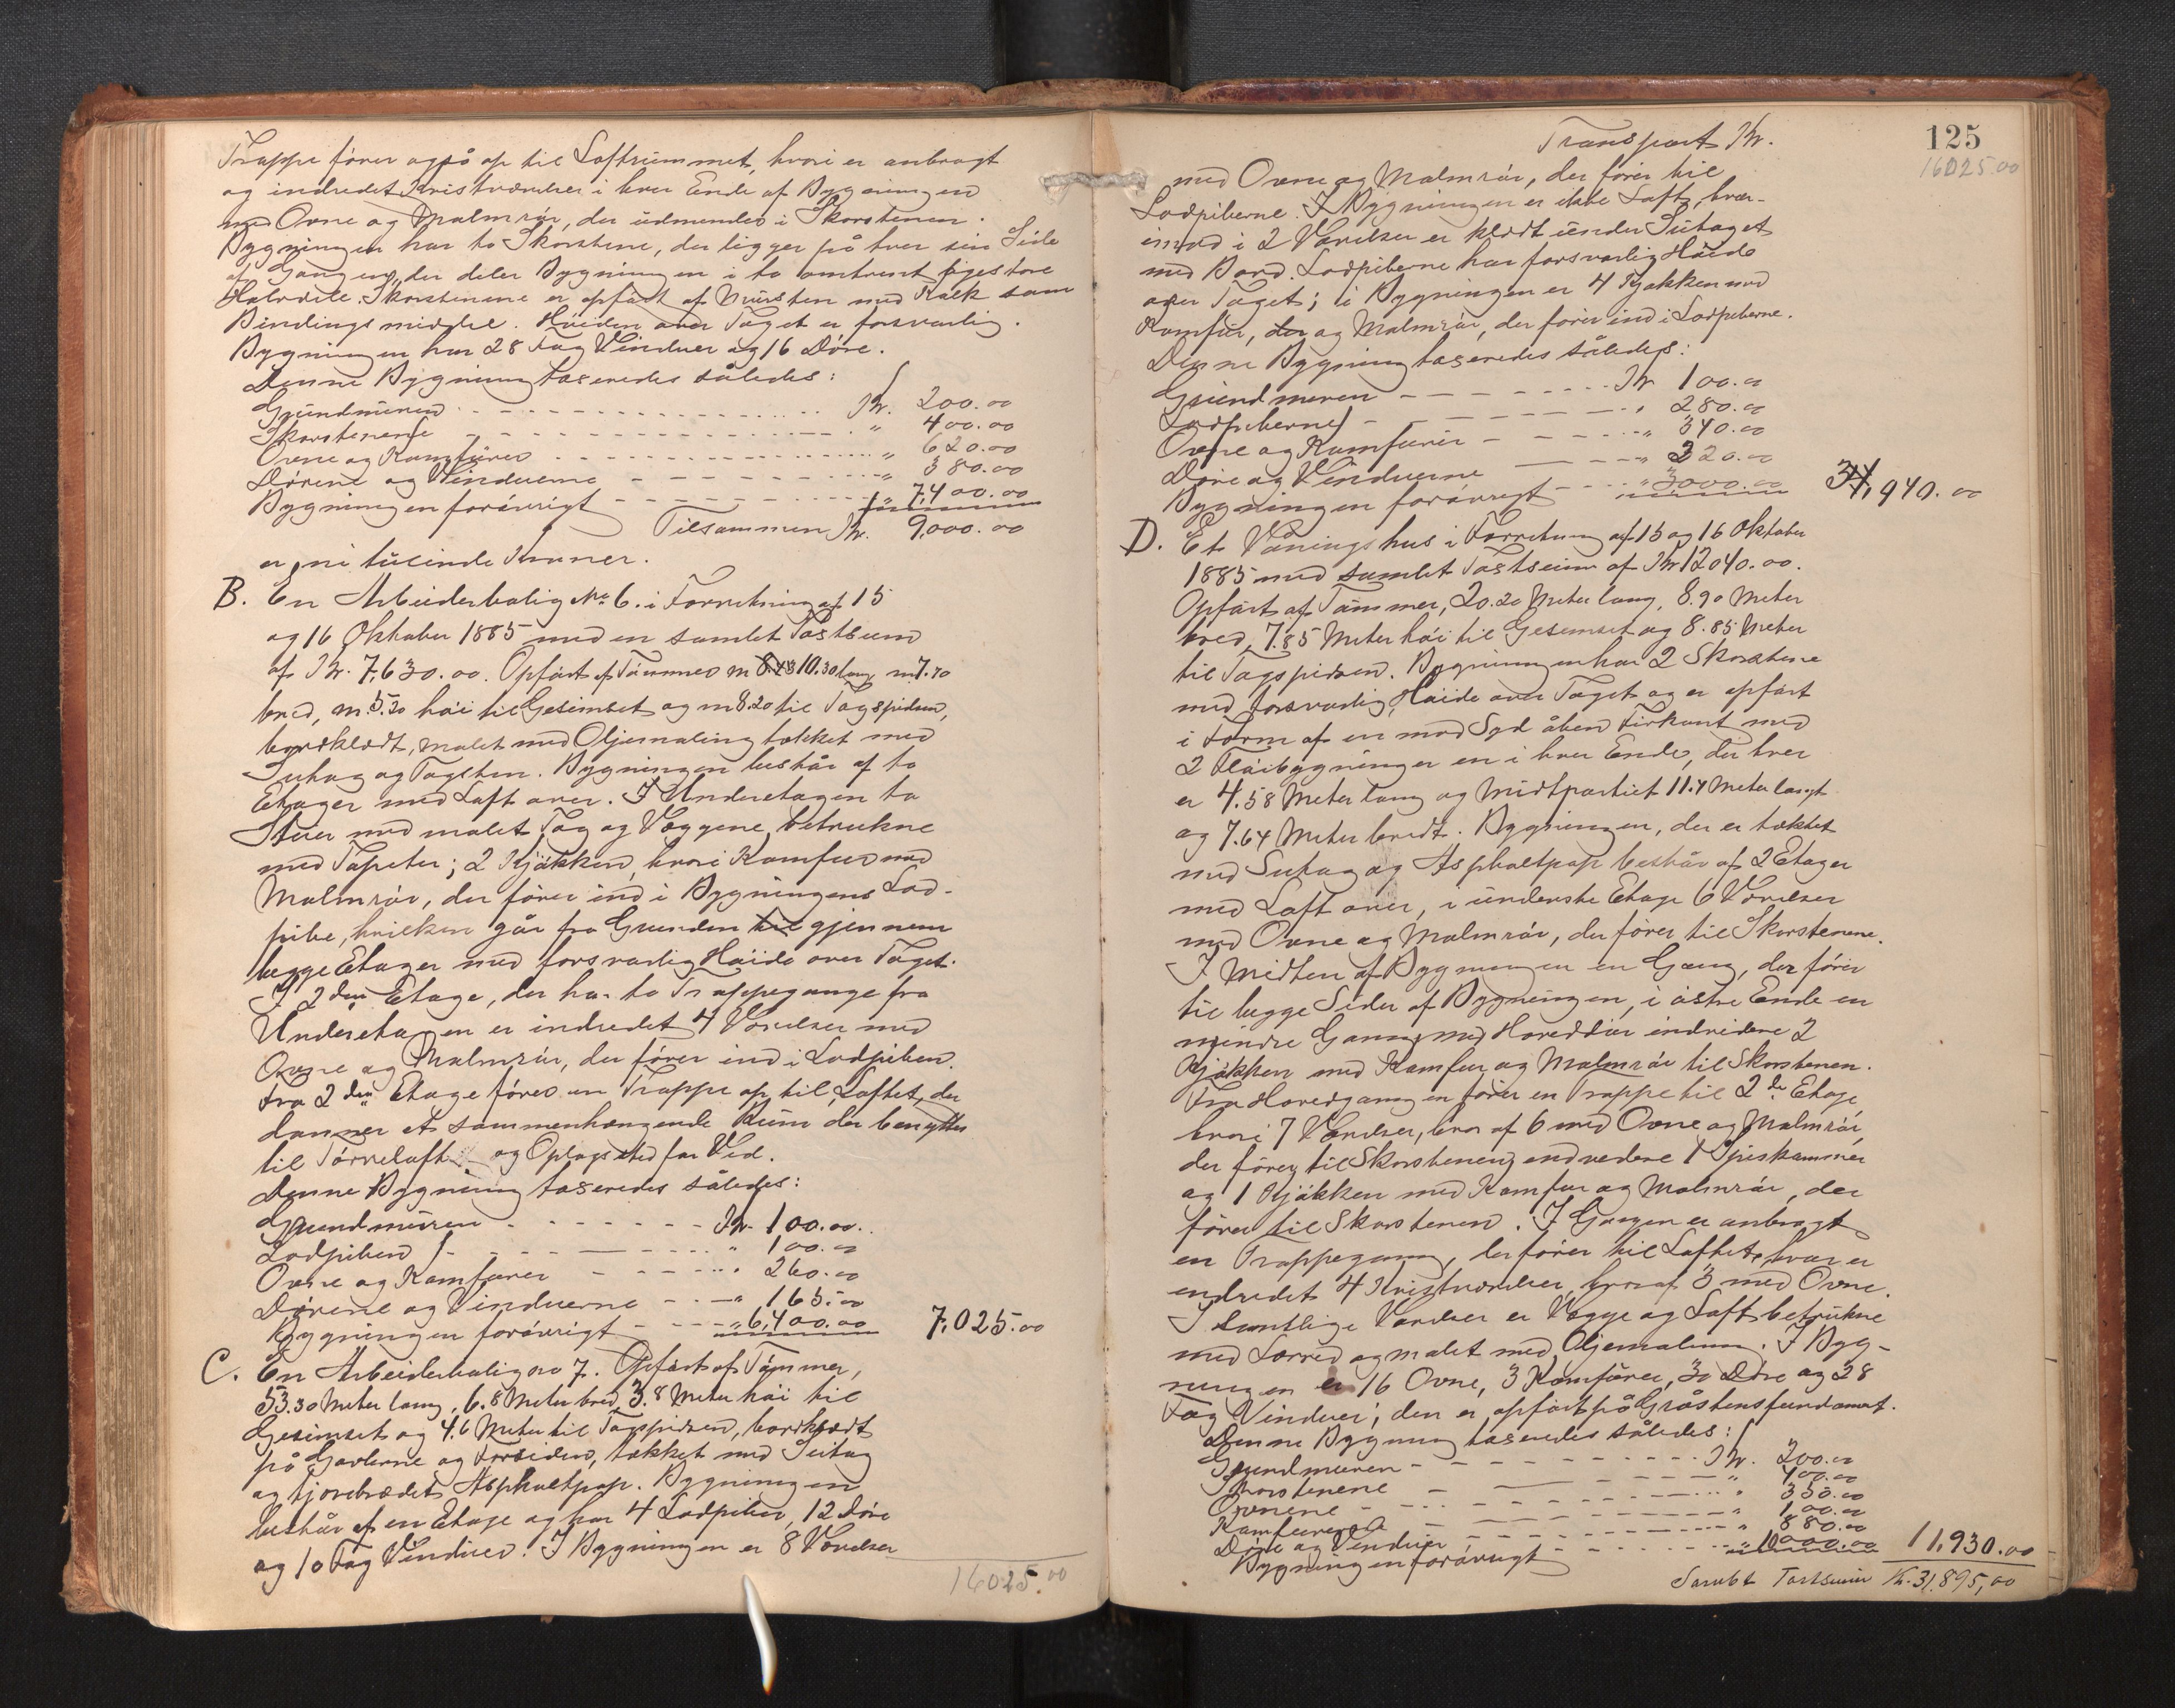 Trappe fører også op til Loftsrummet, hvori er anbragt
og indredet Kristværelser i hver Ende af Bygningen
med Ovne og Malmrør, der udmunder i Skorstenen.
Bygningen har to Skorstene, der ligger på hver sin Side
af Gangen, der deler Bygningen i to omtrent ligestore
Halvdele. Skorstenene er opført af Mursten med Kalk som
Bindingsmiddel. Høiden over Taget er forsvarlig.
Bygningen har 28 Fag Vinduer og 16 Døre.
Denne Bygning taxeredes således:
Grundmuren Kr. 200.00
Skorstenene " 400.00
Ovne og Komfurer " 620.00
Dørene og Vinduerne " 380.00
Bygningen forøvrigt " 7,400.00
Tilsammen Kr. 9,000.00
er ni tusinde Kroner.
B. En Arbeiderbolig No. 6. i Forretning af 15
og 16 Oktober 1885 med en samlet Taxtsum
af Kr. 7,630.00. Opført af Tømmer m 10.30 lang m 7.70
bred, m. 5.20 høi til Gesimset og m 8.20 til Tagspidsen,
bordklædt, malet med Oljemaling tækket med
Sutag og Tagsten. Bygningen består af to
Etager med Loft over. I Underetagen to
Stuer med malet Tag og Væggene betrukne
med Tapeter; 2 Kjøkken, hvori Komfur med
Malmrør, der fører ind i Bygningens Lod-
pibe, hvilken går fra Grunden til gjennem
begge Etager med forsvarlig Høide over Taget.
I 2den Etage, der har to Trappegange fra
Underetagen er indredet 4 Værelser med
Ovne og Malmrør, der fører ind i Lodpiben.
Fra 2den Etage fører en Trappe op til Loftet, der
danner et sammenhængende Rum der benyttes
til Tørreloft og Oplagsted for Ved.
Denne Bygning taxeredes således:
Grundmuren Kr. 100.00
Lodpiben " 100.00
Ovne og Komfurer " 260.00
Dørene og Vinduerne " 165.00
Bygningen forøvrigt " 6,400.00 7,025.00
C. En Arbeiderbolig no 7. Opført af Tømmer,
53.30 Meter lang, 6.8 Meter bred, 3.8 Meter høi til
Gesimset og 4.6 Meter til Tagspidsen, bordklædt
på Gavlerne og Forsiden, tækket med Sutag
og tjærebrædet Asphaltpap. Bygningen
består af en Etage og har 4 Lodpiber, 12 Døre
og 10 Fag Vinduer. I Bygningen er 8 Værelser
16025.00
125
Transport Kr. 16025.00
med Ovne og Malmrør, der fører til
Lodpiberne. I Bygningen er ikke Loft, hvor-
imod i 2 Værelser er klædt under Sutaget
med Bord. Lodpiberne har forsvarlig Høide
over Taget; i Bygningen er 4 Kjøkken med
Komfur, der og Malmrør, der fører ind i Lodpiberne.
Denne Bygning taxeredes således:
Grundmuren Kr 100.00
Lodpiberne " 280.00
Ovne og Komfurer " 340.00
Døre og Vinduerne " 220.00
Bygningen forøvrigt " 3000.00 3,940.00
D. Et Våningshus i Forretning af 15 og 16 Oktober
1885 med samlet Taxtsum af Kr 12040.00.
Opført af Tømmer, 20.20 Meter lang, 8.90 Meter
bred, 7.85 Meter høi til Gesimset og 8.85 Meter
til Tagspidsen. Bygningen har 2 Skorstene
med forsvarlig Høide over Taget og er opført
i Form af en mod Syd åben Firkant med
2 Fløibygninger en i hver Ende, der hver
er 4.58 Meter lang og Midtpartiet 11.4 Meter langt
og 7.64 Meter bredt. Bygningen, der er tækket
med Sutag og Asphaltpap består af 2 Etager
med Loft over, i underste Etage 6 Værelser
med Ovne og Malmrør, der fører til Skorstenene.
I Midten af Bygningen en Gang, der fører
til begge Sider af Bygningen, i østre Ende en
mindre Gang med Hoveddør endvidere 2
Kjøkken med Komfur og Malmrør til Skorstenen.
Fra Hovedgangen fører en Trappe til 2de Etage
hvori 7 Værelser, hvoraf 6 med Ovne og Malmrør,
der fører til Skorstenen, endvidere 1 Spiskammer
og 1 Kjøkken med Komfur og Malmrør, der
fører til Skorstenen. I Gangen er anbragt
en Trappegang, der fører til Loftet, hvor er
indredet 4 Kvistværelser, hvoraf 3 med Ovne.
I samtlige Værelser er Vægge og Loft betrukne
med Lærred og malet med Oljemaling. I Byg-
ningen er 16 Ovne, 3 Komfurer, 30 Døre og 28
Fag Vinduer; den er opført på Gråstensfundament.
Denne Bygning taxeredes således:
Grundmuren Kr. 200.00
Skorstenene " 400.00
Ovnene " 350.00
Komfurerne " 100.00
Døre og Vinduer " 880.00
Bygningen forøvrigt " 10000.00 11,930.00
Samlet Taxtsum Kr. 31,895,00